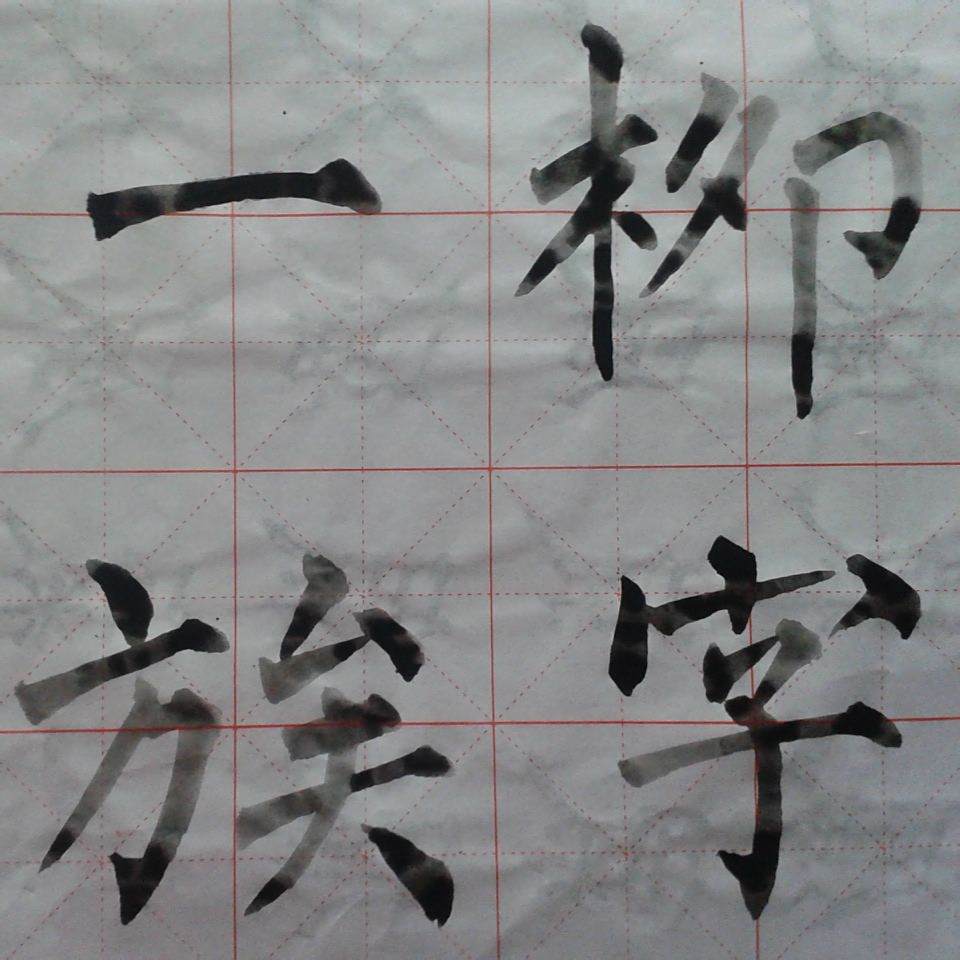 柳字
一族